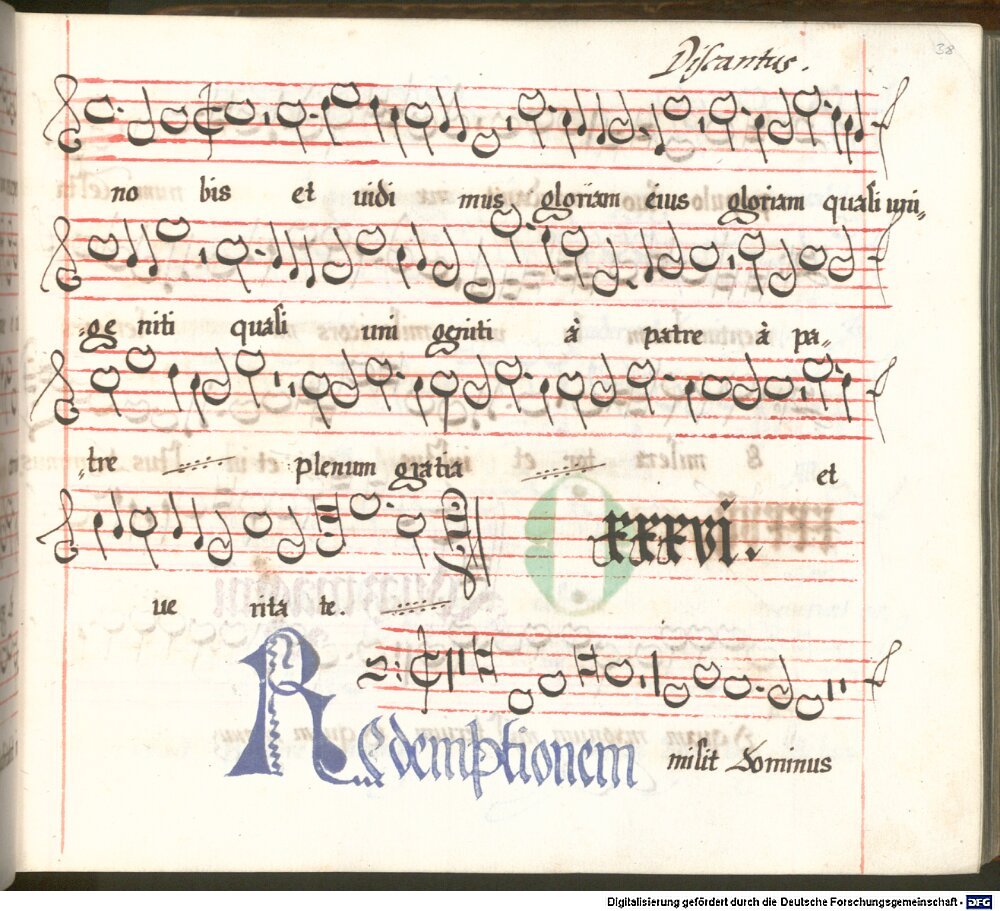 Discantus.
38
no bis et uidi mus gloriam eius gloriam quasi uni„
ge niti quasi uni geniti á patre à pa„
„tre plenum gratia et
xxxvi.
ue rita te.
Redemptionem misit Dominus
Digitalisierung gefördert durch die Deutsche Forschungsgemeinschaft - DFG